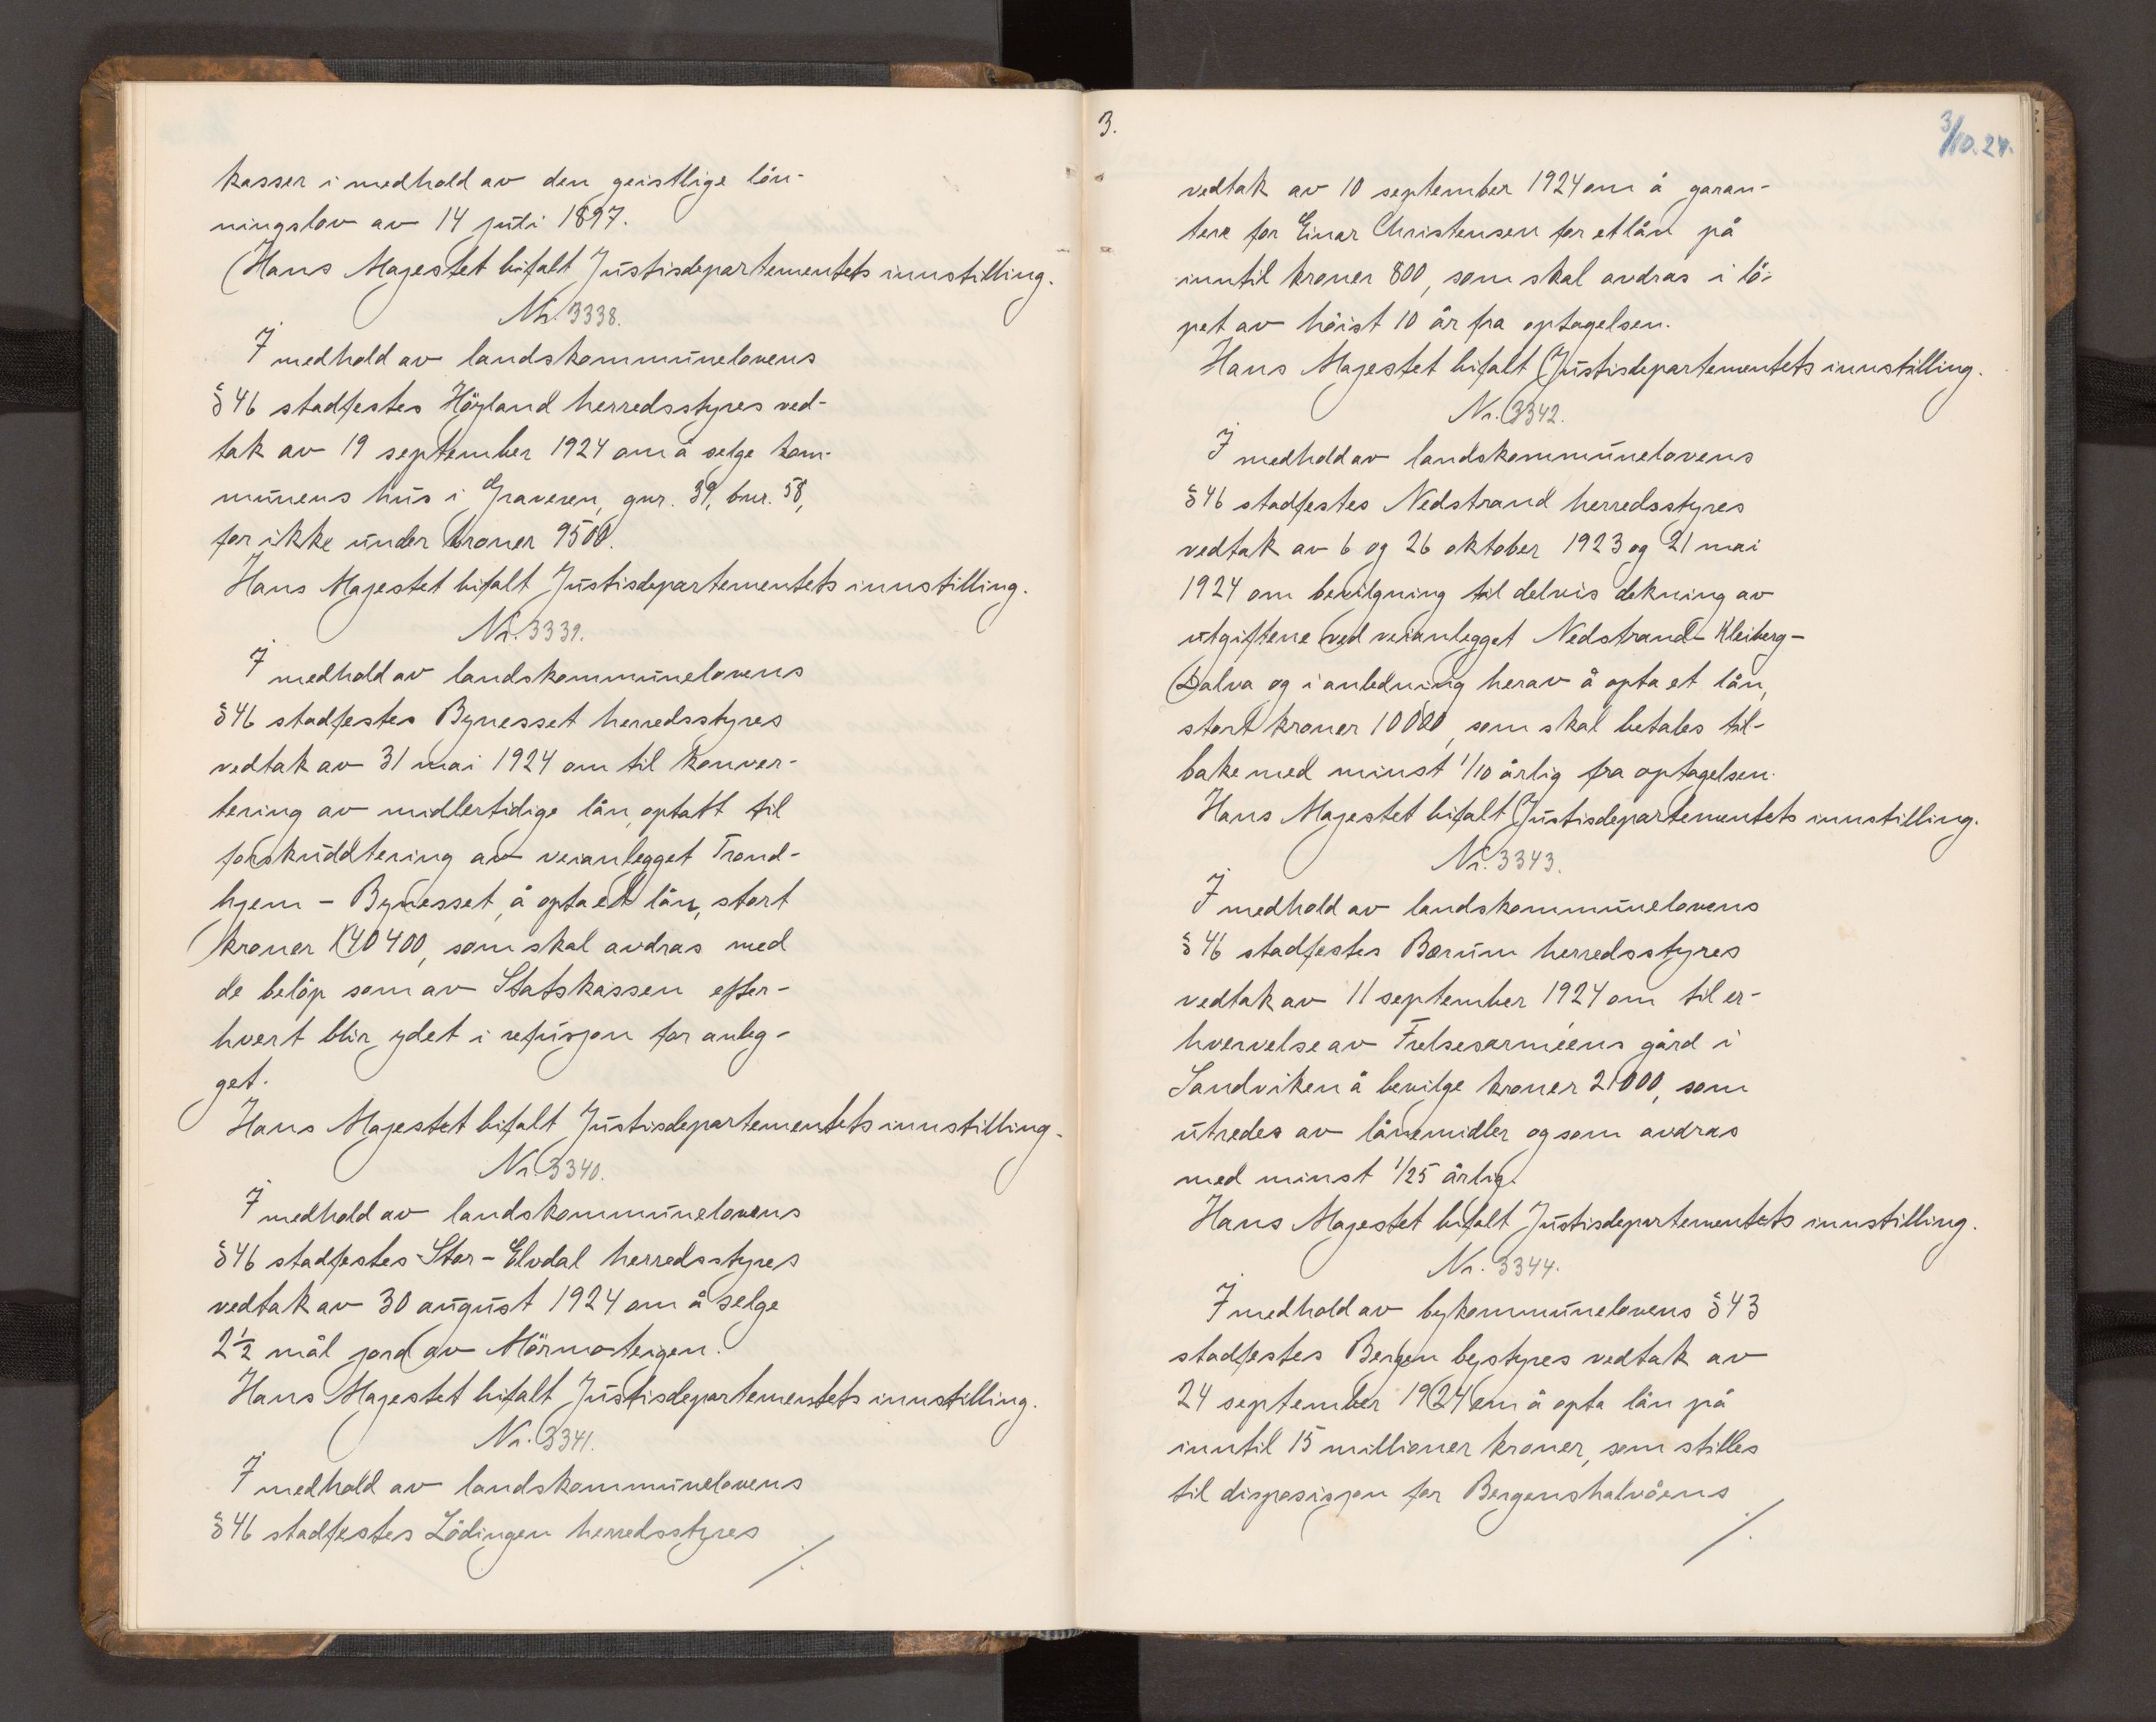 kasser i medhold av den geistlige løn-
ningslov av 14 juli 1897.
Hans Majestet bifalt Justisdepartementets innstilling.
Nr. 3338.
I medhold av landskommunelovens
§ 46 stadfestes Höyland herredsstyres ved-
tak av 19 september 1924 om å selge kom-
munens hus i Graveren, gnr. 39, bnr. 58,
for ikke under kroner 9500.
Hans Majestet bifalt Justisdepartementets innstilling.
Nr. 3339.
I medhold av landskommunelovens
§ 46 stadfestes Bynesset herredsstyres
vedtak av 31 mai 1924 om til konver-
tering av midlertidige lån, optatt til
forskuddtering av veianlegget Trond-
hjem - Bynesset, å opta et lån, stort
kroner 140400, som skal avdras med
de beløp som av Statskassen efter-
hvert blir ydet i refusjon for anleg-
get.
Hans Majestet bifalt Justisdepartementets innstilling.
Nr. 3340.
I medhold av landskommunelovens
§ 46 stadfestes Stor-Elvdal herredsstyres
vedtak av 30 august 1924 om å selge
2½ mål jord av Mörmoteigen.
Hans Majestet bifalt Justisdepartementets innstilling.
Nr. 3341.
I medhold av landskommunelovens
§ 46 stadfestes Lödingen herredsstyres
./.
3.
3/10.24.
vedtak av 10 september 1924 om å garan-
tere for Einar Christensen for et lån på
inntil kroner 800, som skal avdras i lö-
pet av höist 10 år fra optagelsen.
Hans Majestet bifalt Justisdepartementets innstilling.
Nr. 3342.
I medhold av landskommunelovens
§ 46 stadfestes Nedstrand herredsstyres
vedtak av 6 og 26 oktober 1923 og 21 mai
1924 om bevilgning til delvis dekning av
utgiftene ved veianlegget Nedstrand - Kleiberg -
Dalva og i anledning herav å opta et lån,
stort kroner 10000, som skal betales til-
bake med minst 1/10 årlig fra optagelsen.
Hans Majestet bifalt Justisdepartementets innstilling.
Nr. 3343.
I medhold av landskommunelovens
§ 46 stadfestes Bærum herredsstyres
vedtak av 11 september 1924 om til er-
hvervelse av Frelsesarméens gård i
Sandviken å bevilge kroner 21000, som
utredes av lånemidler og som avdras
med minst 1/25 årlig.
Hans Majestet bifalt Justisdepartementets innstilling.
Nr. 3344.
I medhold av bykommunelovens § 43
stadfestes Bergen bystyres vedtak av
24 september 1924 om å opta lån på
inntil 15 millioner kroner, som stilles
til disposisjon for Bergenshalvöens
./.